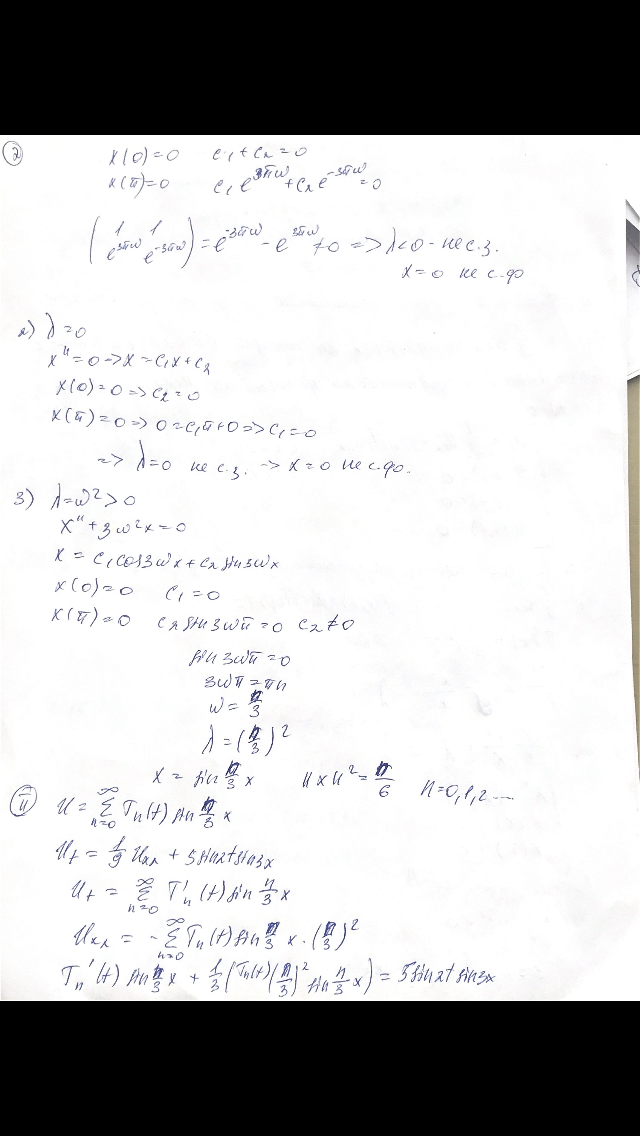 ②
x(0)=0 c₁+c₂=0
x(π)=0 c₁e^{3πω}+c₂e^{-3πω}=0
(1 1
e^{3πω} e^{-3πω}) = e^{-3πω} - e^{3πω} ≠0 => λ<0 - не с.з.
x=0 не с.ф
2) λ=0
x''=0 -> x=c₁x+c₂
x(0)=0 => c₂=0
x(π)=0 => 0=c₁π+0 => c₁=0
=> λ=0 не с.з. -> x=0 не с.ф.
3) λ=ω²>0
x''+3ω²x=0
x = c₁cos3ωx+c₂sin3ωx
x(0)=0 c₁=0
x(π)=0 c₂sin3ωπ=0 c₂≠0
sin3ωπ=0
3ωπ=πn
ω=n/3
λ=(n/3)²
x = sin n/3 x ||x||²=π/6 n=0,1,2....
II
U=∑_{n=0}^{∞} Tₙ(t) sin n/3 x
Uₜ = 1/9 Uₓₓ + 5sin2tsin3x
Uₜ = ∑_{n=0}^{∞} T'ₙ(t) sin n/3 x
Uₓₓ = -∑_{n=0}^{∞} Tₙ(t) sin n/3 x·(n/3)²
Tₙ'(t) sin n/3 x + 1/3 (Tₙ(t)(n/3)² sin n/3 x) = 5sin2tsin3x